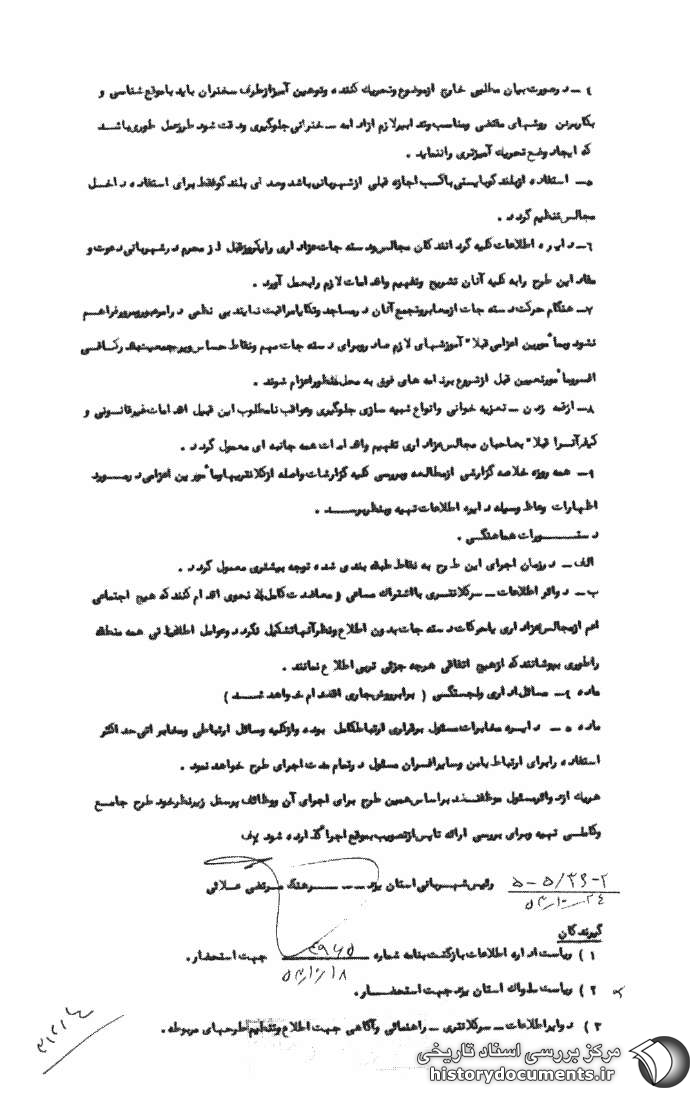 ٤ – در صورت بیان مطلبی خارج از موضوع و تحریک کننده و توهین آمیز از طرف سخنران باید با موقع شناسی و
بکار بردن روشهای مقتضی و مناسب و تدابیر لازم از ادامه سخنرانی جلوگیری و دقت شود طرز عمل طوری باشد
که ایجاد وضع تحریک آمیزتری را ننماید .
۵ – استفاده از بلندگو بایستی با کسب اجازه قبلی از شهربانی باشد و صدای بلندگو فقط برای استفاده داخل
مجالس تنظیم گردد .
٦ – دایره اطلاعات کلیه گردانندگان مجالس و دسته جات عزاداری را یکروز قبل از محرم در شهربانی دعوت و
مفاد این طرح را به کلیه آنان تشریح و تفهیم و اقدامات لازم را بعمل آورد .
۷ – هنگام حرکت دسته جات از معابر و تجمع آنان در مساجد و تکایا مراقبت نمایند بی نظمی در امر عبور و مرور فراهم
نشود و مأمورین اعزامی قبلا" آموزشهای لازم صادر و برای دسته جات مهم و نقاط حساس و پرجمعیت بقدر کافی
افسر و مأمور تعیین قبل از شروع برنامه های فوق به محل منظور اعزام شوند .
۸ – از قمه زدن – تعزیه خوانی و انواع شبیه سازی جلوگیری و عواقب نامطلوب این قبیل اقدامات غیرقانونی و
کیفر آنرا قبلا" بصاحبان مجالس عزاداری تفهیم و اقدامات همه جانبه ای معمول گردد .
۹ – همه روزه خلاصه گزارشی از مطالعه و بررسی کلیه گزارشات واصله از کلانتریها و مأمورین اعزامی در مورد
اظهارات وعاظ وسیله دایره اطلاعات تهیه و بنظر برسد .
دستورات هماهنگی .
الف – در زمان اجرای این طرح به نقاط طبقه بندی شده توجه بیشتری معمول گردد .
ب – دوائر اطلاعات – سرکلانتری با اشتراک مساعی و معاضدت کامل به نحوی اقدام کنند که هیچ اجتماعی
اعم از مجالس عزاداری یا حرکات دسته جات بدون اطلاع و نظر آنها تشکیل نگردد و عوامل اطلاعاتی همه منطقه
را طوری بپوشانند که از هیچ اتفاقی هرچه جزئی تر بی اطلاع نمانند .
ماده ٤ – مسائل اداری و لجستگی ( برابر روش جاری اقدام خواهد شد )
ماده ۵ – دایره مخابرات مسئول برقراری ارتباط کامل بوده و از کلیه وسائل ارتباطی و مخابراتی حداکثر
استفاده را برای ارتباط با من و سایر افسران مسئول در تمام مدت اجرای طرح خواهد نمود .
هریک از دوائر مسئول موظفند بر اساس همین طرح برای اجرای آن و وظائف پرسنل زیر نظر خود طرح جامع
و کاملی تهیه و برای بررسی ارائه تا پس از تصویب بموقع اجرا گذارده شود
رئیس شهربانی استان یزد – سرهنگ مرتضی علائی
۵-۵/۳۶-۲
۵۴/۱۰/۲٤
گیرندگان
۱ ) ریاست اداره اطلاعات بازگشت بنامه شماره ۴۹۶۵ جهت استحضار .
۵۴/۱۰/۱۸
۲ ) ریاست ساواک استان یزد جهت استحضار .
۳ ) دوایر اطلاعات – سرکلانتری – راهنمائی و آگاهی جهت اطلاع و تنظیم طرحهای مربوطه .
مرکز بررسی اسناد تاریخی
historydocuments.ir